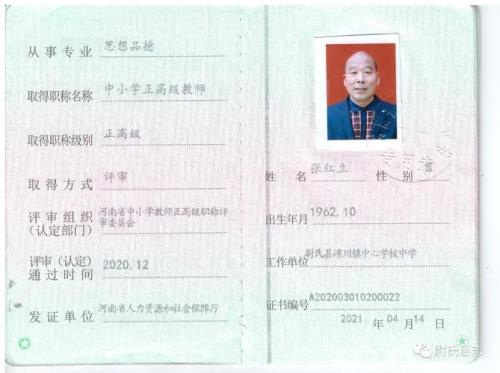 从事专业 思想品德
取得职称名称 中小学正高级教师
取得职称级别 正高级
取得方式 评审
评审组织
(认定部门)
河南省中小学教师正高级职称评
审委员会
评审(认定)
通过时间
2020.12
发证单位 河南省人力资源和社会保障厅
姓名 张红立 性别 男
出生年月 1962.10
工作单位 尉氏县洧川镇中心学校中学
证书编号 A202003010200022
2021 年 04 月 14 日
尉氏县志